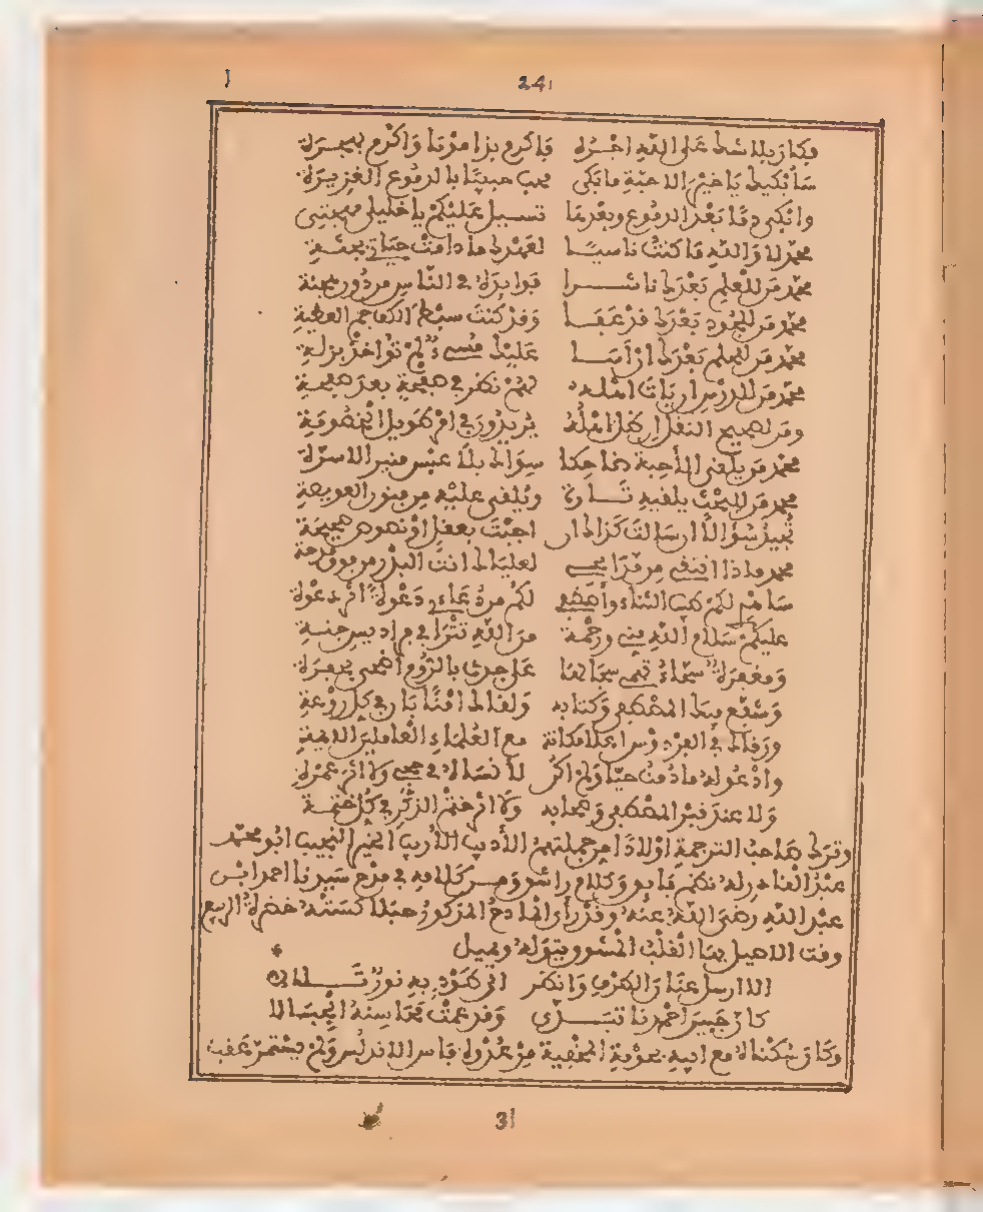 241
فكان بلا شك على الله اجره فاكرم بذا مرقا واكرم بهجرة
سأبكيك يا خير الاحبة ما بكى محب حبيبا بالدموع الغزيرة
وابكى دما بعد الدموع وبعدما تسيل عليكم يا خليلي مهجتي
محمد لا والله ما كنت ناسيا لعهدك ما دامت حياتي بحتة
محمد من للعلم بعدك ناشرا فوايده في الناس من دور محنة
محمد من للجود بعدك قد عفا وقد كنت سبط الكف جم العطية
محمد من للحلم بعدك ان أسا عليك مسيء لم تواخذ بزلة
محمد من للدرس ان يات اهله
ومن لصحيح النقل ان ضل اهله
محمد من يلقى الأحبة ضاحكا سواك بلا عبس منير الاسرة
محمد من للبحث يلقيه تارة ويلقى عليه من فنون العويصة
تجيز سؤالا ان سالت كذاك ان اجبت بعقل او نصوص صحيحة
محمد ماذا ابتغي من لعلياك انت البدر من فوق
لكم من دعاءي دعوة اثر دعوة
عليكم سلام الله مني ورحمة من الله تترى في فراديس جنة
ومغفرة سحاء تهمي سحابها على جدث بالروح اضحى بحفرة
وشفع فيك المصطفى وكتابه ولقاك امنا يا ربي كل روعة
ورقاك في الفردوس اعلا مكانة مع العلماء العاملين الايمة
وادعو له ما دمت حيا ولم اكن لأنساه في حجي ولا اثر عمرة
ولا عند قبر المصطفى وصحابه ولا اثر ختم الذكر في كل ختمة
وترك صاحب الترجمة اولادا من جملتهم الأديب الأريب الخير النجيب ابو محمد
عبد القادر له نظم فايق وكلام رائق ومن كلامه في مدح سيدنا احمد ابن
عبد الله رضي الله عنه وقد رأى المادح المذكور جبلا كسته خضرة الربيع
وقت الاصيل بها القلب المشوق يتوله ويميل
الا ارسل عنان الطرف وانظر الى طود به نور تلالا
كان حبيبنا احمدنا تبدى وقد عمت محاسنه الجبالا
وكان سكناه مع ابيه بحومة المخفية من عدوة فاس الاندلس ولم يستمر عقب
31